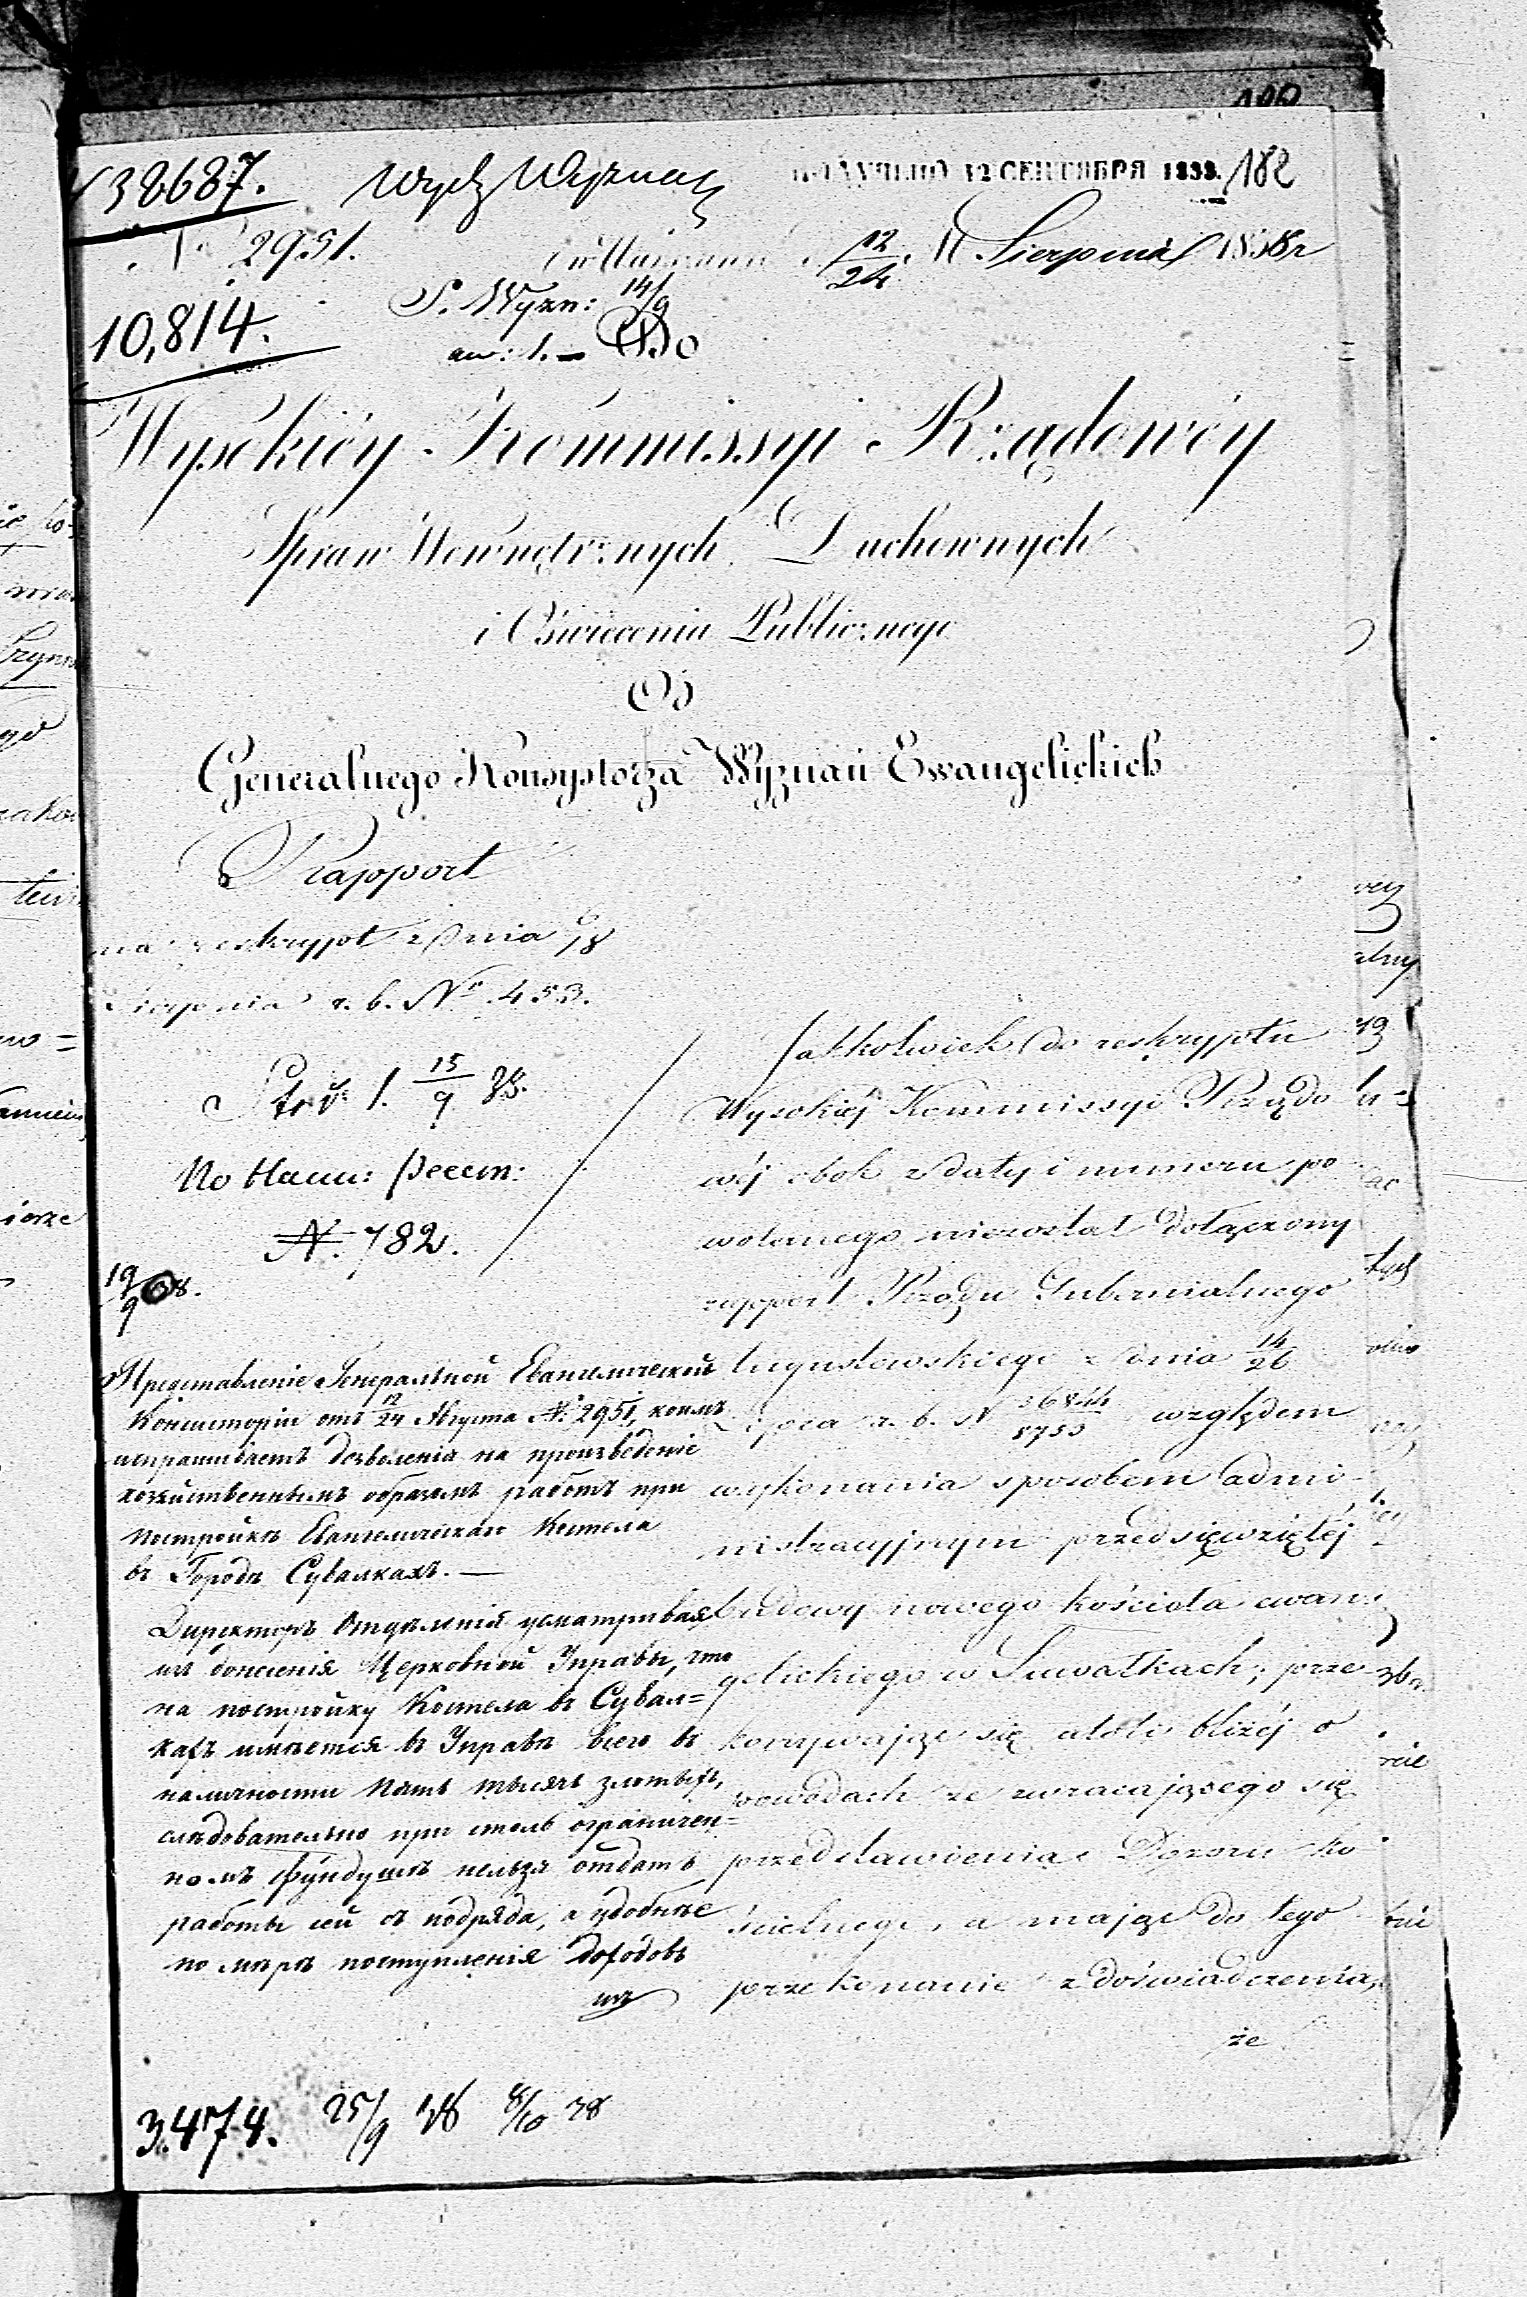 38687. Wydz Wyznań ПОЛУЧЕНО 12 СЕНТЯБРЯ 1838. 182
No 2951. w Warszawie d. 12/24 M Sierpnia 1838 r
S. Wyzn: 14/9
10,814.
an: 1. — Do
Wysokiéy Kommissyi Rządowéy
Spraw Wewnętrznych Duchownych
i Oświecenia Publicznego
Od
Generalnego Konsystorza Wyznań Ewangelickich
Rapport
na reskrypt z dnia 6/18
Sierpnia r. b. No 453.
1. 15/9 38.
По Наст: Реест:
N. 782.
19/9 38.
Представленіе Генеральной Евангелической
Консисторіи отъ 12/24 Августа N. 2951, коимъ
испрашиваетъ дозволенія на произведеніе
хозяйственнымъ образомъ работъ при
постройкѣ Евангелическаго Костела
въ Городѣ Сувалкахъ. —
Директоръ Отдѣленія усматривая
изъ донесенія Церковной Управы, что
на постройку Костела въ Сувал=
кахъ имѣется въ Управѣ всего въ
наличности пять тысячъ злотыхъ,
слѣдовательно при столь ограничен=
номъ фундушѣ нельзя отдать
работы сей съ подряда, а удобнѣе
по мѣрѣ поступленія доходовъ
изъ
Jakkolwiek do reskryptu
Wysokiéj Kommissyi Rządo
wéj obok z daty i numeru po
wołanego niezostał dołączony
rapport Rządu Gubernialnego
Augustowskiego z dnia 14/26
Lipca r. b. N 26844/8753 względem
wykonania sposobem admi-
nistracyjnym przedsięwziętéj
budowy nowego kościoła ewan
gelickiego w Suwałkach; prze
konywając się atoli bliżéj o
powodach ze zwracającego się
przedstawienia Dozoru ko
ścielnego, a mając do tego
przekonanie z doświadczenia,
że
3.474. 25/9 38 8/10 38